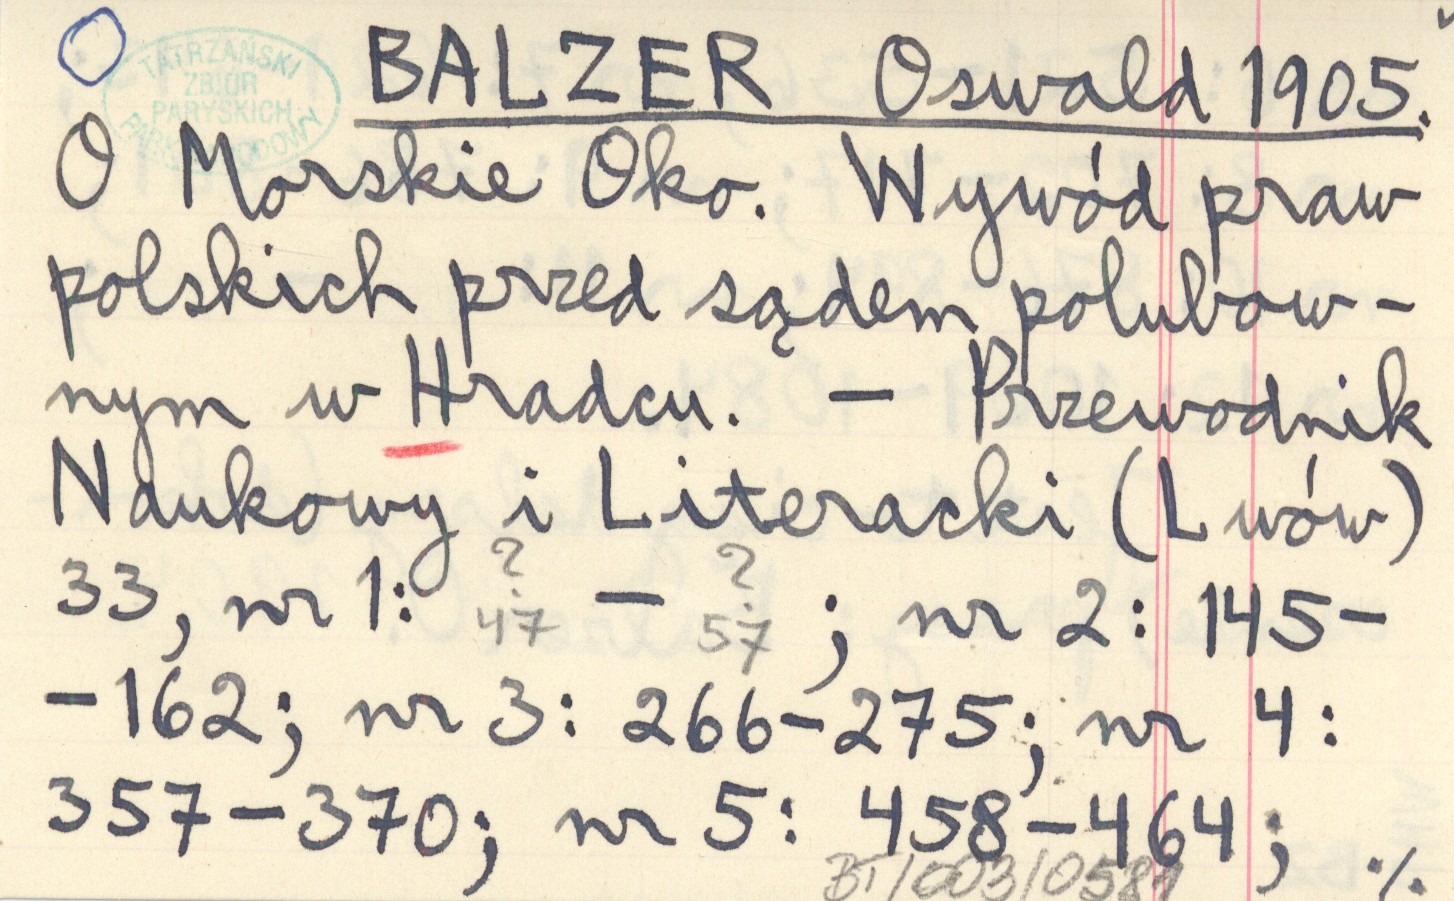 TATRZAŃSKI
ZBIÓR
PARYSKICH
BALZER Oswald 1905.
O Morskie Oko. Wywód praw
polskich przed sądem polubow-
nym w Hradcu. — Przewodnik
Naukowy i Literacki (Lwów)
33, nr 1: ? 47 — ? 57 ; nr 2: 145-
-162; nr 3: 266-275; nr 4:
357-370; nr 5: 458-464; ./.
BT/003/0581